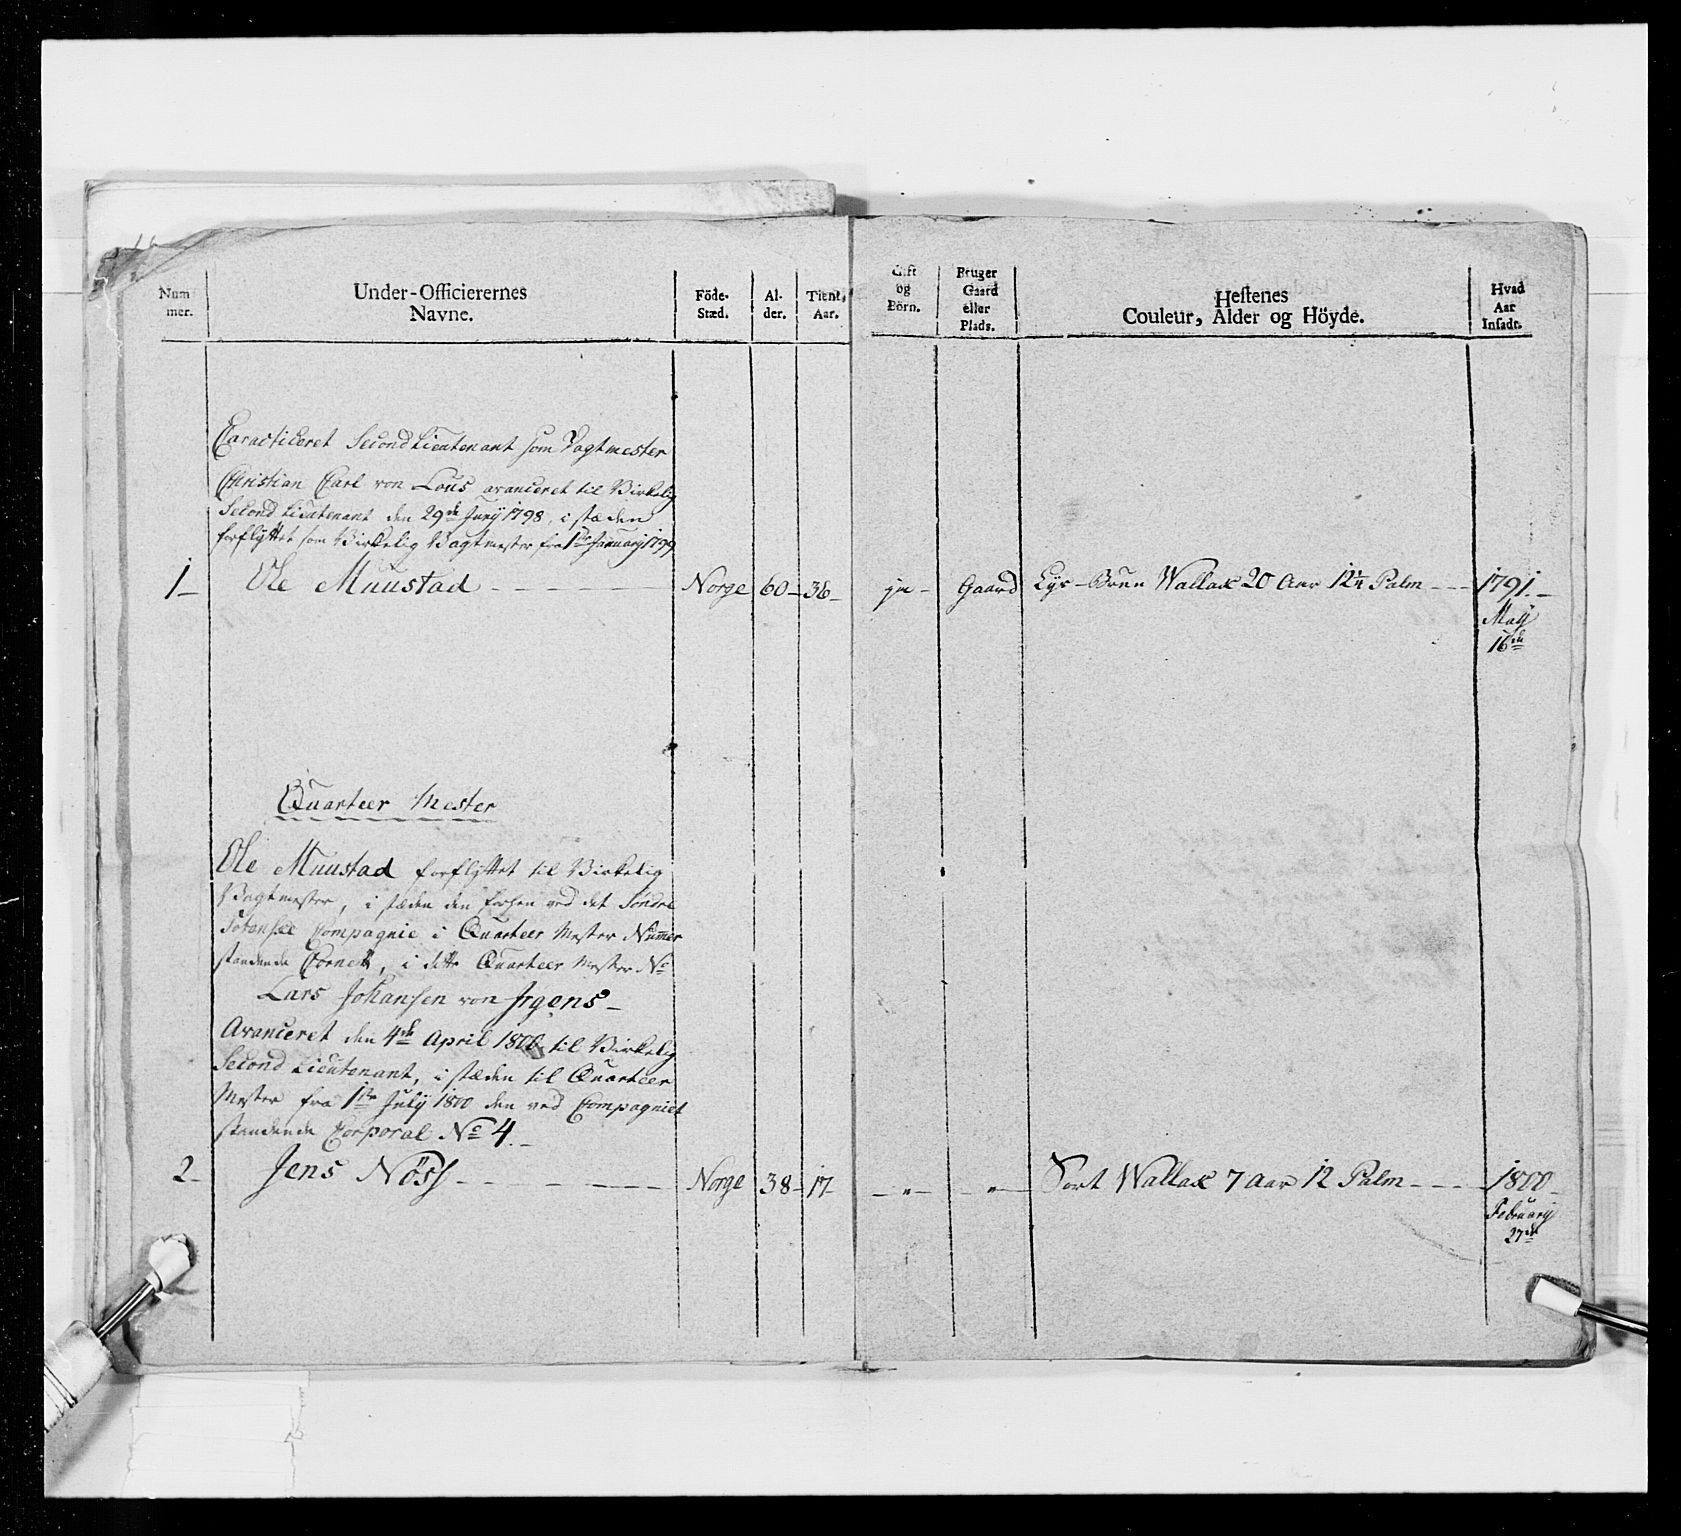 Num mer.
Under-Officierernes Navne.
Föde-Stæd.
Al-der.
Tient, Aar.
Gift og Börn.
Bruger Gaard eller Plads.
Hestenes Couleur, Alder og Höyde.
Hvad Aar Insadt.
Caracticeret Second Lieutenant som Vagtmester
Christian Carl von Lous avanceret til Virkelig
Second Lieutenant den 29de Junÿ 1798, i stæden
forflÿttet som Virkelig Vagtmester fra 1ste Januarÿ 1799
1 Ole Muustad Norge 60 36 ja Gaard Lÿs-Brun Wallak 20 Aar 12¼ Palm 1791.
Maÿ
16de
Quarteer Mester
Ole Muustad forflÿttet til Virkelig
Vagtmester, i stæden den forhen ved det Söndre
Totenske Compagnie i Quarteer Mester Nummer
staaende Cornett, i dette Quarteer Mester No
Lars Johansen von Irgens
Avanceret den 4de April 1800 til Virkelig
Second Lieutenant, i stæden til Quarteer
Mester fra 1ste Julÿ 1800 den ved Compagniet
staaende Corporal No 4.
2 Jens Nöss Norge 38 17 " " Sort Wallak 7 Aar 12 Palm 1800
Februarÿ
27de